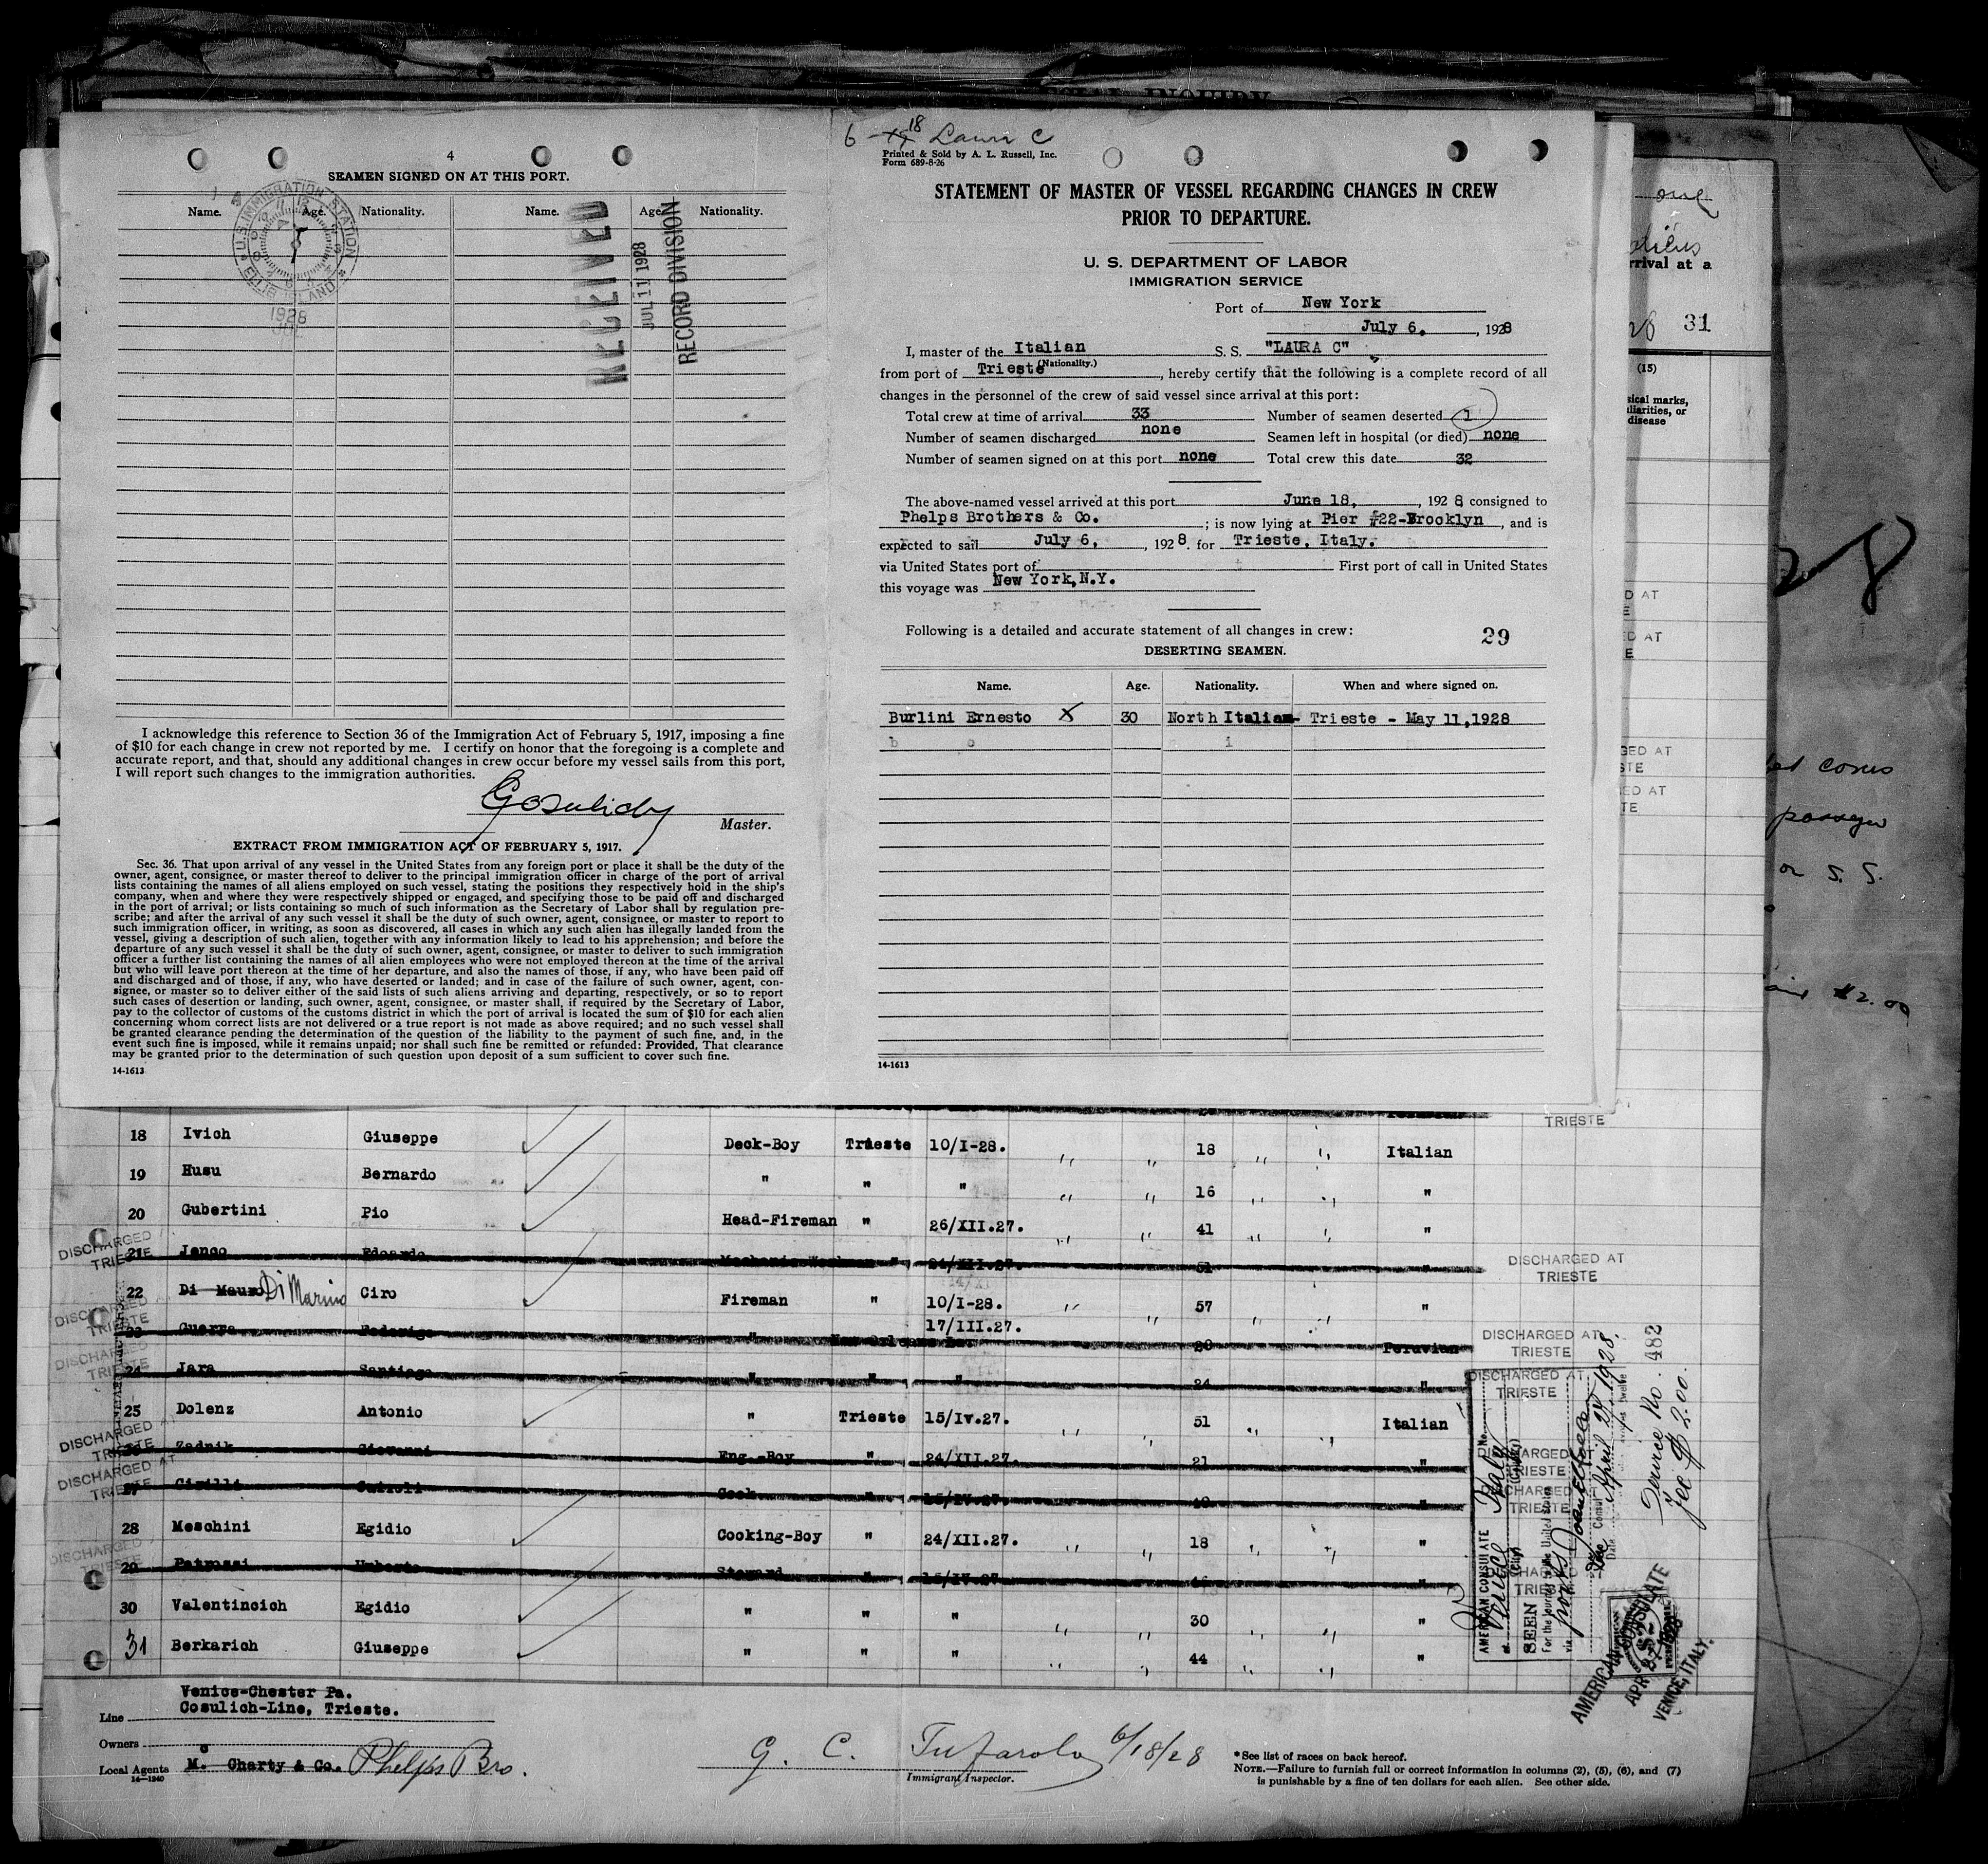 4
SEAMEN SIGNED ON AT THIS PORT.
Name. Age. Nationality. Name. Age. Nationality.
U.S. IMMIGRATION STATION
ELLIS ISLAND
1928
RECEIVED
JUL 11 1928
RECORD DIVISION
I acknowledge this reference to Section 36 of the Immigration Act of February 5, 1917, imposing a fine
of $10 for each change in crew not reported by me. I certify on honor that the foregoing is a complete and
accurate report, and that, should any additional changes in crew occur before my vessel sails from this port,
I will report such changes to the immigration authorities.
Master.
EXTRACT FROM IMMIGRATION ACT OF FEBRUARY 5, 1917.
Sec. 36. That upon arrival of any vessel in the United States from any foreign port or place it shall be the duty of the
owner, agent, consignee, or master thereof to deliver to the principal immigration officer in charge of the port of arrival
lists containing the names of all aliens employed on such vessel, stating the positions they respectively hold in the ship's
company, when and where they were respectively shipped or engaged, and specifying those to be paid off and discharged
in the port of arrival; or lists containing so much of such information as the Secretary of Labor shall by regulation pre-
scribe; and after the arrival of any such vessel it shall be the duty of such owner, agent, consignee, or master to report to
such immigration officer, in writing, as soon as discovered, all cases in which any such alien has illegally landed from the
vessel, giving a description of such alien, together with any information likely to lead to his apprehension; and before the
departure of any such vessel it shall be the duty of such owner, agent, consignee, or master to deliver to such immigration
officer a further list containing the names of all alien employees who were not employed thereon at the time of the arrival
but who will leave port thereon at the time of her departure, and also the names of those, if any, who have been paid off
and discharged and of those, if any, who have deserted or landed; and in case of the failure of such owner, agent, con-
signee, or master so to deliver either of the said lists of such aliens arriving and departing, respectively, or so to report
such cases of desertion or landing, such owner, agent, consignee, or master shall, if required by the Secretary of Labor,
pay to the collector of customs of the customs district in which the port of arrival is located the sum of $10 for each alien
concerning whom correct lists are not delivered or a true report is not made as above required; and no such vessel shall
be granted clearance pending the determination of the question of the liability to the payment of such fine, and, in the
event such fine is imposed, while it remains unpaid; nor shall such fine be remitted or refunded: Provided, That clearance
may be granted prior to the determination of such question upon deposit of a sum sufficient to cover such fine.
14-1613
6-18 Laura C
Printed & Sold by A. L. Russell, Inc.
Form 689-8-26
STATEMENT OF MASTER OF VESSEL REGARDING CHANGES IN CREW
PRIOR TO DEPARTURE.
U. S. DEPARTMENT OF LABOR
IMMIGRATION SERVICE
Port of New York
July 6, , 1928
I, master of the Italian S. S. "LAURA C"
(Nationality.)
from port of Trieste, hereby certify that the following is a complete record of all
changes in the personnel of the crew of said vessel since arrival at this port:
Total crew at time of arrival 33 Number of seamen deserted 1
Number of seamen discharged none Seamen left in hospital (or died) none
Number of seamen signed on at this port none Total crew this date 32
The above-named vessel arrived at this port June 18, , 192 8, consigned to
Phelps Brothers & Co. ; is now lying at Pier #22-Brooklyn , and is
expected to sail July 6, , 192 8. for Trieste, Italy.
via United States port of First port of call in United States
this voyage was New York, N.Y.
Following is a detailed and accurate statement of all changes in crew: 29
DESERTING SEAMEN.
Name. Age. Nationality. When and where signed on.
Burlini Ernesto X 30 North Italian- Trieste - May 11, 1928
14-1613
rrival at a
31
(15)
sical marks,
liarities, or
disease
passgr
or S. S.
$2.00
TRIESTE
18 Ivich Giuseppe Deck-Boy Trieste 10/I-28. " " 18 " " Italian
19 Husu Bernardo " " " " " 16 " " "
20 Gubertini Pio Head-Fireman " 26/XII.27. " " 41 " " "
21 Jenco Edoardo Mechanic-Workman " 24/XII.27. 51 "
DISCHARGED AT
TRIESTE
22 Di Mauro Di Marino Ciro Fireman " 10/I-28. " " 57 " " "
23 Guerra Federigo " New Orleans La. 17/III.27. 20 Peruvian
DISCHARGED AT
TRIESTE
24 Jara Santiago " " " 24 "
DISCHARGED AT
TRIESTE
25 Dolenz Antonio " Trieste 15/Iv.27. " " 51 " " Italian
Zadnik Giovanni Eng.-Boy " 24/XII.27. 21 "
27 Cook " 15/IV.27. "
28 Meschini Egidio Cooking-Boy " 24/XII.27. " " 18 " " "
29 Patrossi Umberto Steward " 15/IV-27 "
30 Valentincich Egidio " " " " " 30 " " "
31 Berkarich Giuseppe " " " " " 44 " " "
AMERICAN CONSULATE
at Venice Italy
(City) (Country)
SEEN
For the journey to the United States
via
Consul
Date April 27, 1928.
Service No. 482
Fee $2.00.
AMERICAN CONSULATE
APR 27 1928
VENICE, ITALY.
Line Venice-Chester Pa.
Cosulich-Line, Trieste.
Owners
Local Agents Mc Charty & Co. Phelps Bro.
14-1240
G. C. Tufarolo 6/18/28
Immigrant Inspector.
*See list of races on back hereof.
NOTE.—Failure to furnish full or correct information in columns (2), (5), (6), and (7)
is punishable by a fine of ten dollars for each alien. See other side.